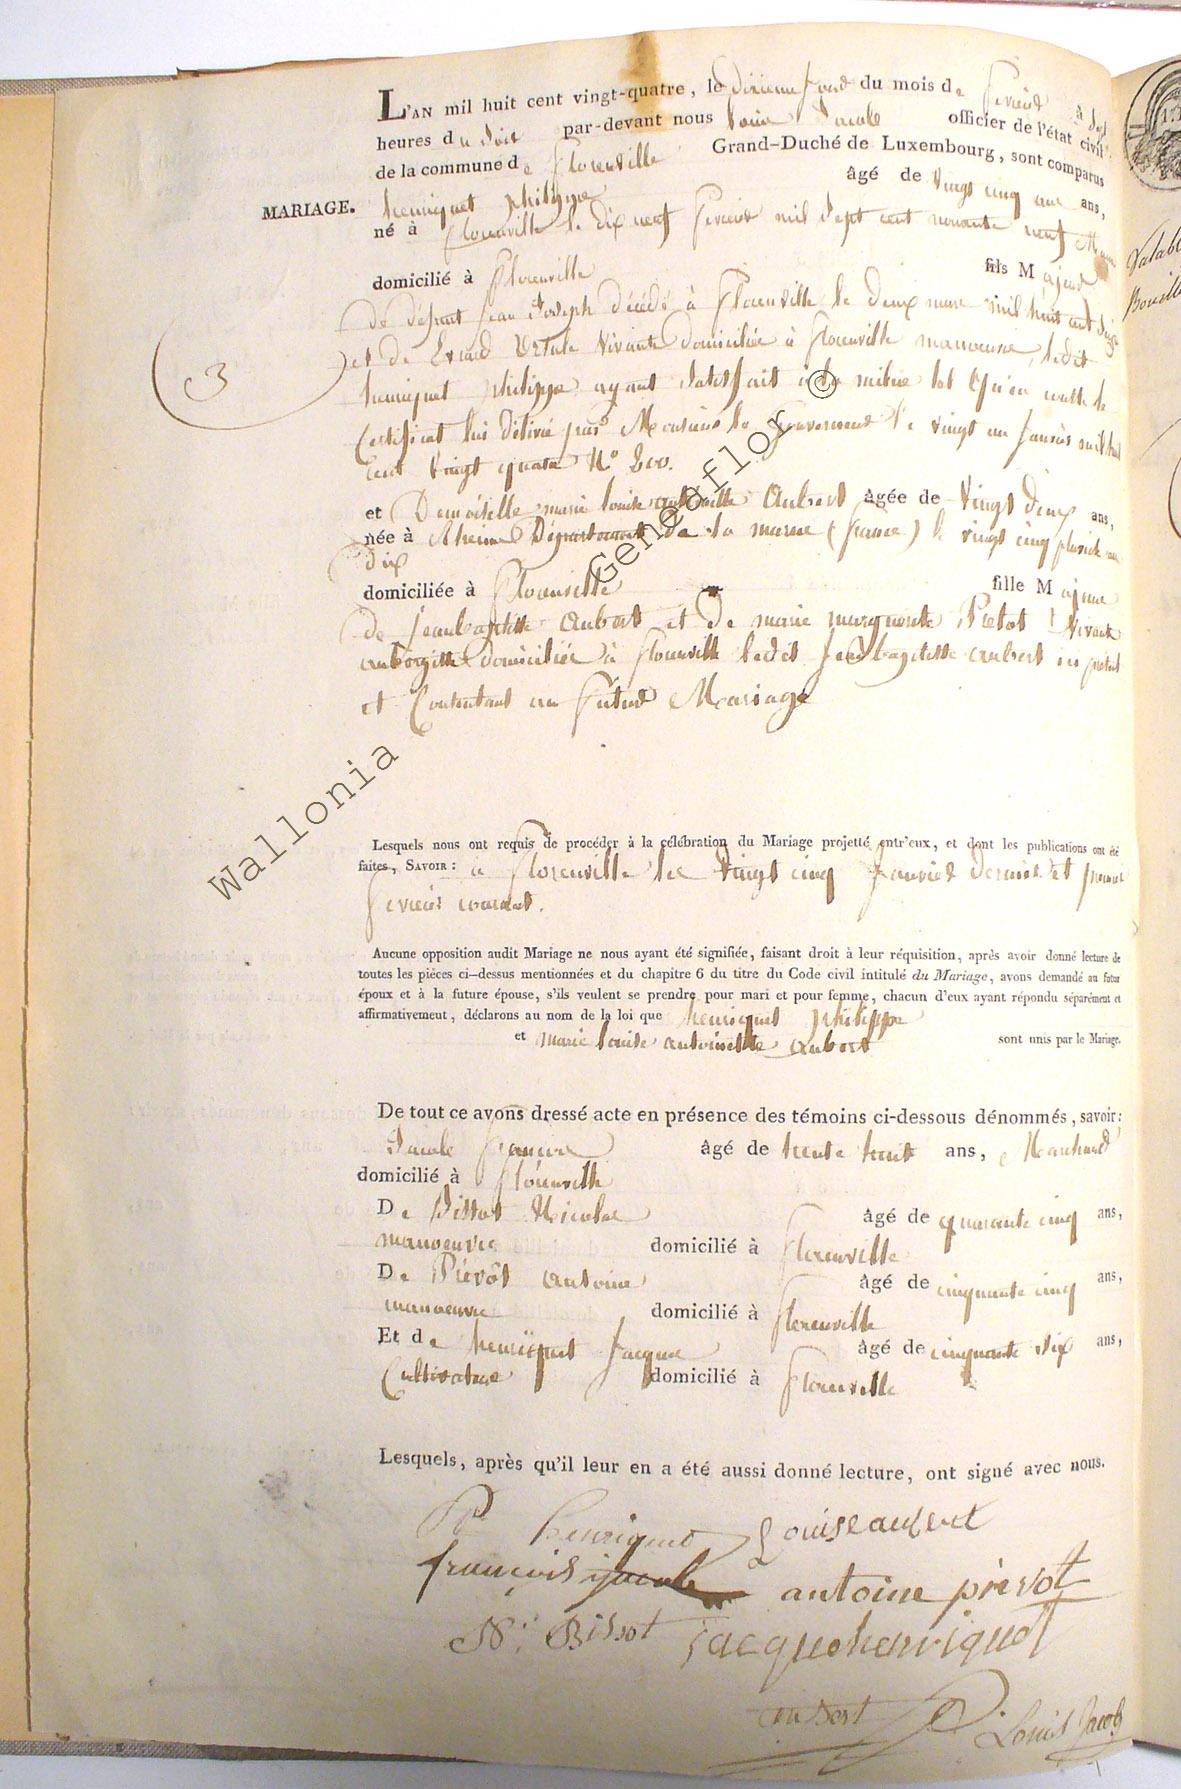 L'AN mil huit cent vingt-quatre, le dixieme jour du mois de fevrier à sept
heures du soir par-devant nous Louis Jacob officier de l'état civil
de la commune de florenville Grand-Duché de Luxembourg, sont comparus
MARIAGE. henriquet philippe âgé de vingt cinq ans,
né à florenville le dix neuf fevrier mil sept cent nonante neuf
domicilié à florenville fils Majeur
de defunt jean Joseph décédé à florenville le deux mars mil huit cent
et de Evrard Ursule vivante domiciliée à florenville manoeuvre, ledit
henriquet philippe ayant satisfait à la milice tel qu'en conste le
Certificat lui délivré par Monsieur le Gouverneur le vingt un janvier mil huit
Cent vingt quatre N° 200.
et Demoiselle marie louise antoinette Aubert âgée de vingt deux ans,
née à Rheims Département de la marne (france) le vingt cinq pluviose an
dix
domiciliée à florenville fille Majeure
de jean baptiste Aubert et de marie marguerite Pretot vivants
aubergiste domiciliés à florenville ledit jean baptiste aubert ici présent
et Consentant au futur Mariage
3
Lesquels nous ont requis de procéder à la célébration du Mariage projetté entr'eux, et dont les publications ont été
faites, SAVOIR : à florenville les vingt cinq janvier dernier et premier
fevrier courant.
Aucune opposition audit Mariage ne nous ayant été signifiée, faisant droit à leur réquisition, après avoir donné lecture de
toutes les piéces ci-dessus mentionnées et du chapitre 6 du titre du Code civil intitulé du Mariage, avons demandé au futur
époux et à la future épouse, s'ils veulent se prendre pour mari et pour femme, chacun d'eux ayant répondu séparément et
affirmativement, déclarons au nom de la loi que henriquet philippe
et marie louise antoinette aubert sont unis par le Mariage.
De tout ce avons dressé acte en présence des témoins ci-dessous dénommés, savoir:
Jacob françois âgé de trente huit ans, Marchand
domicilié à florenville
De Bissot Nicolas âgé de quarante cinq ans,
manoeuvre domicilié à florenville
De Piérôt antoine âgé de cinquante cinq ans,
manoeuvre domicilié à florenville
Et de henriquet jacque âgé de cinquante six ans,
Cultivateur domicilié à florenville
Lesquels, après qu'il leur en a été aussi donné lecture, ont signé avec nous.
Ph henriquet Louise aubert
françois jacob antoine piérot
N. Bissot jacque henriquet
aubert Louis Jacob
Wallonia Geneaflor ©